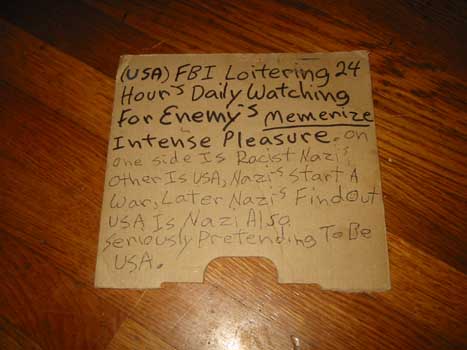 (USA) FBI Loitering 24
Hour's Daily Watching
For Enemy's Memenize
Intense Pleasure. On
one side Is Racist Nazi's
Other Is USA, Nazi's Start A
War, Later Nazi's Findout
USA Is Nazi Also
Seriously Pretending To Be
USA.